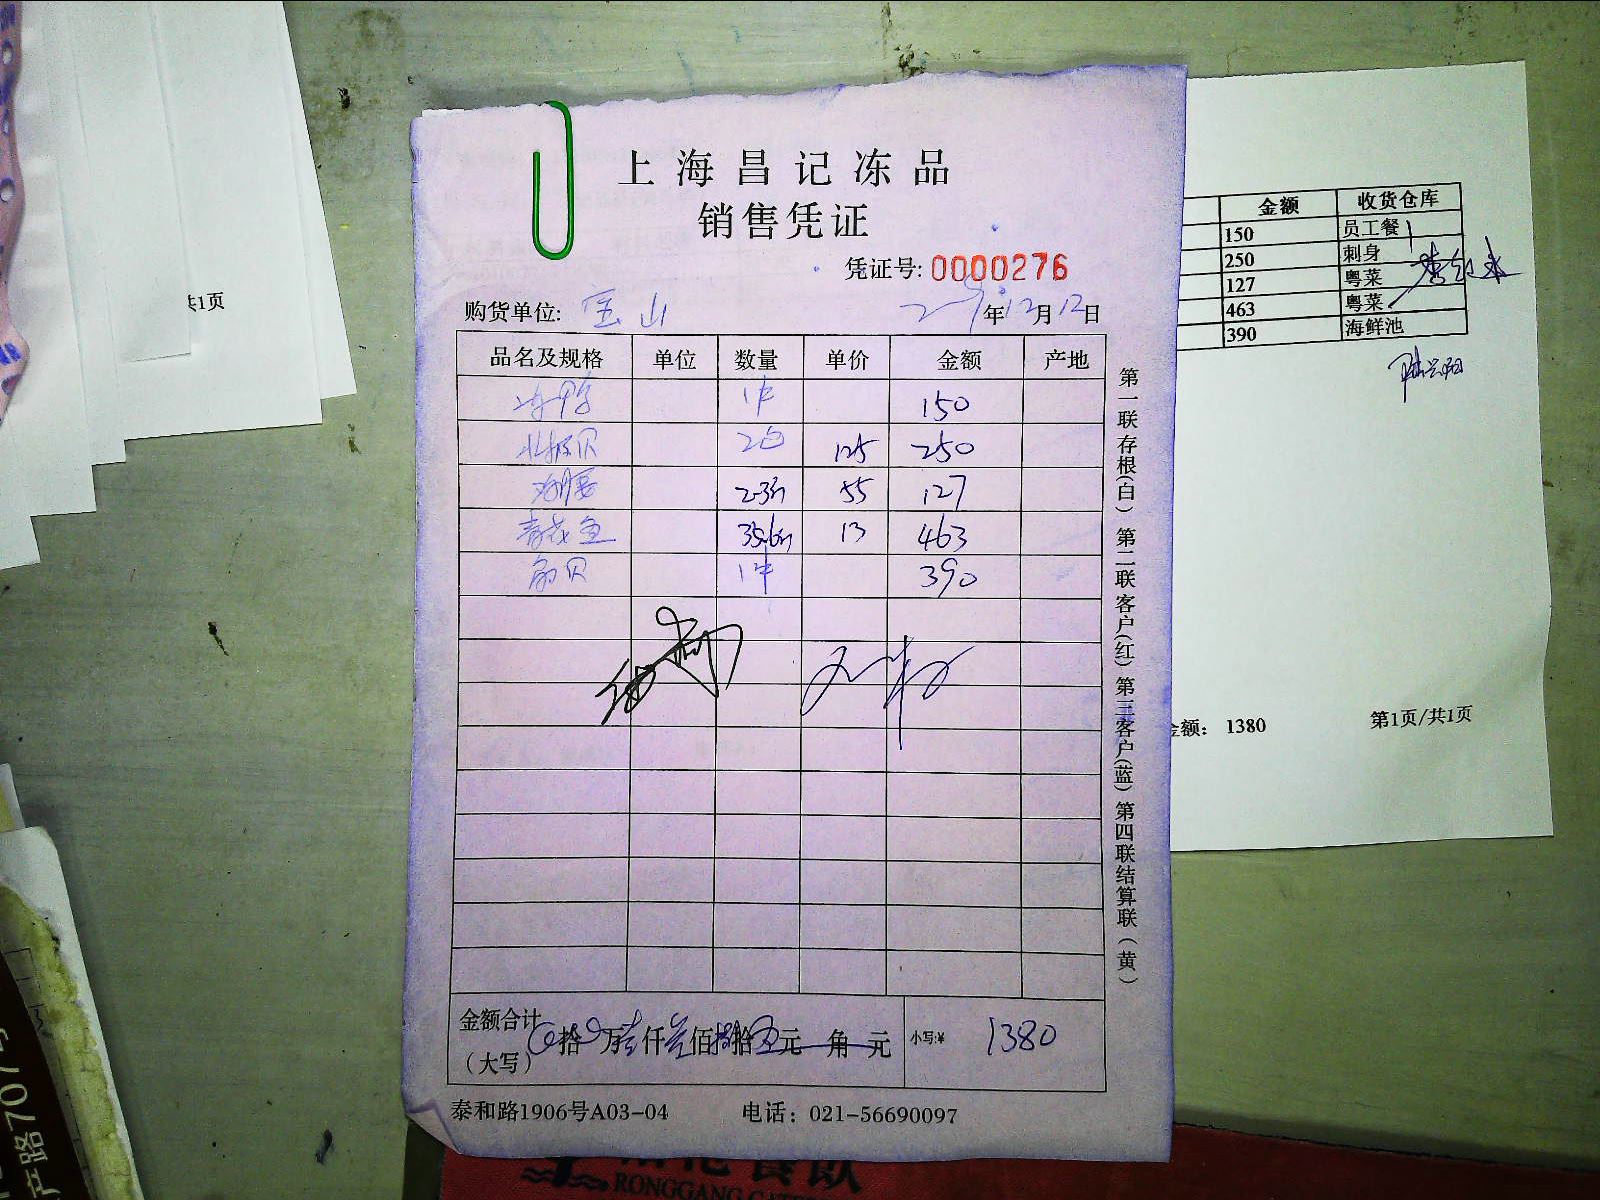 上海昌记冻品
销售凭证
凭证号: 0000276
购货单位: 宝山 年12月12日
品名及规格 单位 数量 单价 金额 产地
冻鸭 1件 150
北极贝 2包 125 250
海蜇 2.3斤 55 127
青花鱼 35.6斤 13 463
1件 390
金额合计
(大写) 拾 万壹仟叁佰捌拾 元 角 元 小写:¥ 1380
泰和路1906号A03-04 电话: 021-56690097
第一联存根(白) 第二联客户(红) 第三客户(蓝) 第四联结算联(黄)
金额 收货仓库
150 员工餐
250 刺身
127 粤菜
463 粤菜
390 海鲜池
金额: 1380 第1页/共1页
共1页
产路707号
RONGGANG